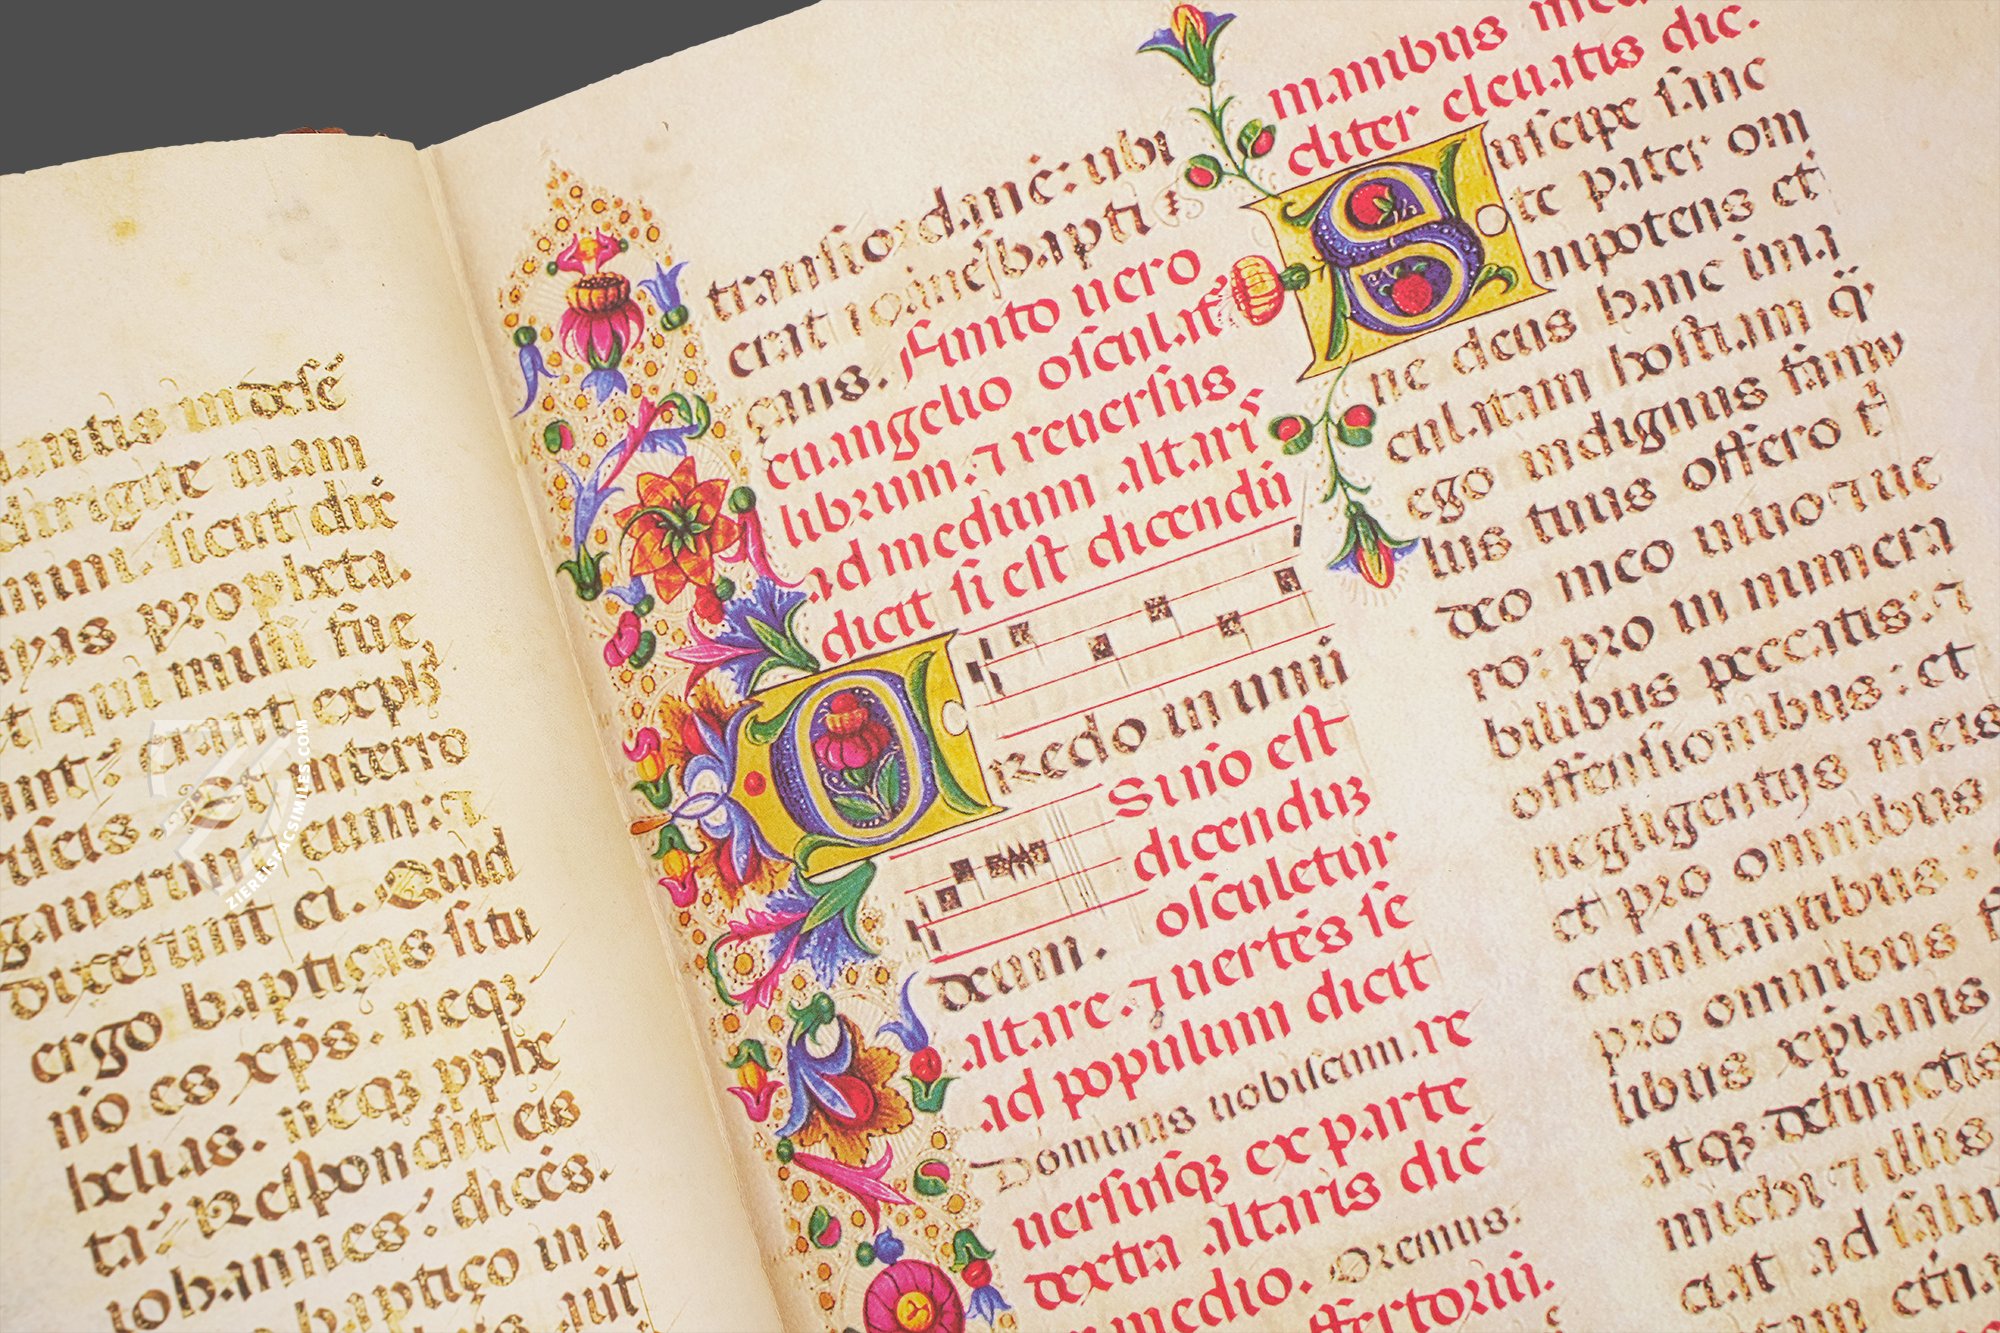 antis in desē
dirigite uiam
mini. sicut dix
yas propheta.
t qui missi fue
ant: erant exph
iseis. Et interro
gauerunt eum: ⁊
dixerunt ei. Quid
ergo baptiças si tu
no es xp̄s. neqꝫ
helias. neqꝫ pphe
ta: Respondit eis
iohannes: dicēs.
baptiço in a
uit
transiordanē: ubi
erat ioānes bapti
çans. Finito uero
euangelio osculat̄
librum. ⁊ reuersus.
ad medium altari^s
dicit si est dicendū
Credo in unū
deum.
Suio est
dicenduꝫ
osculetur
altare. ⁊ uertēs se
ad populum dicit
Dominus uobiscum. re
uersusqꝫ ex parte
dextra altaris dic̄
medio. Oremus.
offertoriū.
manibus
diter eleuatis dic.
Suscipe sanc
te pater om
nipotens et
ne deus hanc ima
culatam hostiam q̄
ego indignus famu
lus tuus offero t̄
deo meo uiuo ⁊ ue
ro: pro in numera
bilibus peccatis: ⁊
offensionibus: et
negligentijs meis
et pro omnibus
cumstantibus:
pro omnibus f
libus xp̄ianis
atqꝫ defunctis
michi ⁊ illis
ciat ad salu
ZIEREISFACSIMILES.COM